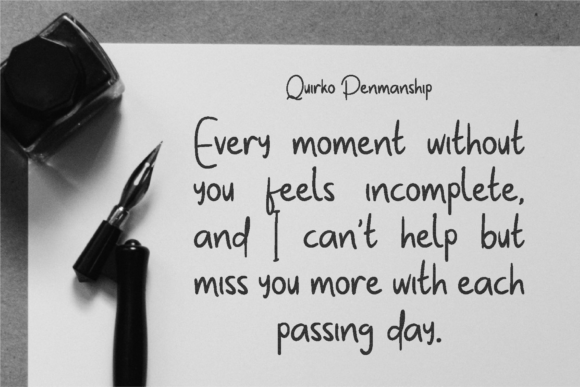 Quirko Penmanship
Every moment without
you feels incomplete,
and I can't help but
miss you more with each
passing day.